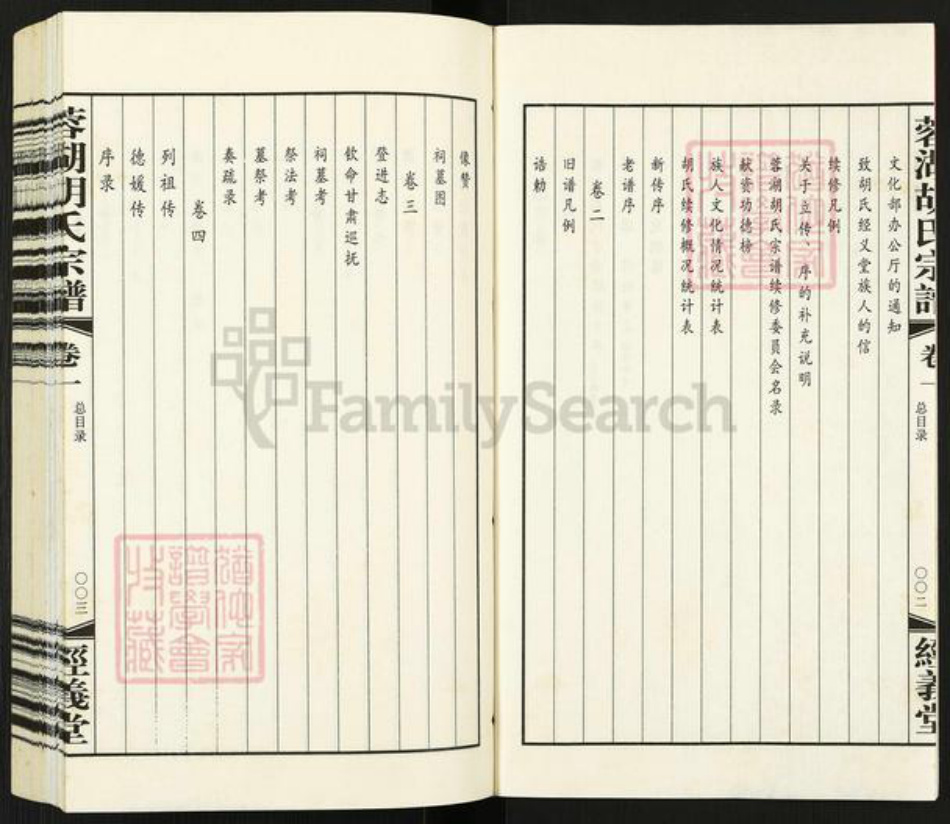 蓉湖胡氏宗譜
卷一
总目录
〇〇二
經義堂
文化部办公厅的通知
致胡氏经义堂族人的信
续修凡例
关于立传、序的补充说明
蓉湖胡氏宗谱续修委員会名录
献资功德榜
族人文化情况统计表
胡氏续修概况统计表
新传序
老谱序
卷二
旧谱凡例
诰勅
像赞
祠墓图
卷三
登进志
钦命甘肃巡抚
祠墓考
祭法考
墓祭考
奏疏录
卷四
列祖传
德媛传
序录
蓉湖胡氏宗譜
卷一
总目录
〇〇三
經義堂
FamilySearch